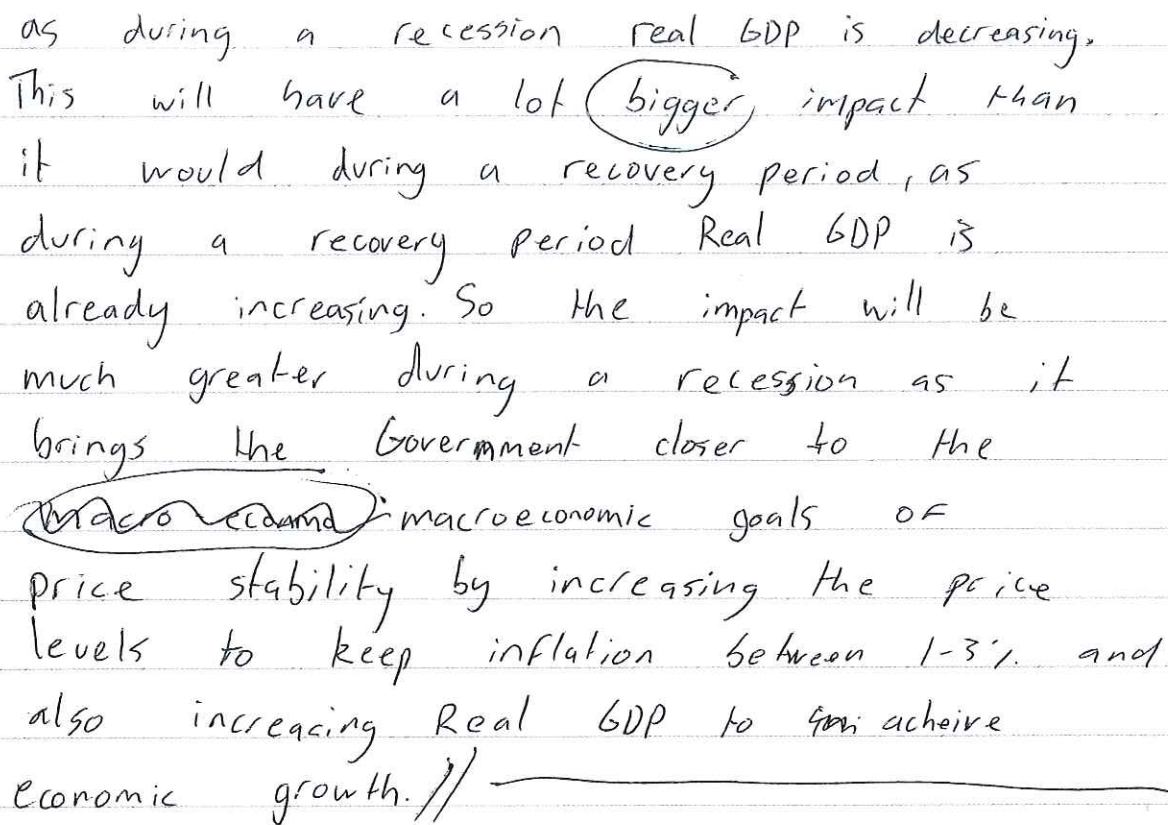 as during a recession real GDP is decreasing.
This will have a lot bigger impact than
it would during a recovery period, as
during a recovery period Real GDP is
already increasing. So the impact will be
much greater during a recession as it
brings the Government closer to the
macroeconomic goals OF
price stability by increasing the price
levels to keep inflation between 1-3% and
also increacing Real GDP to acheive
economic growth. //